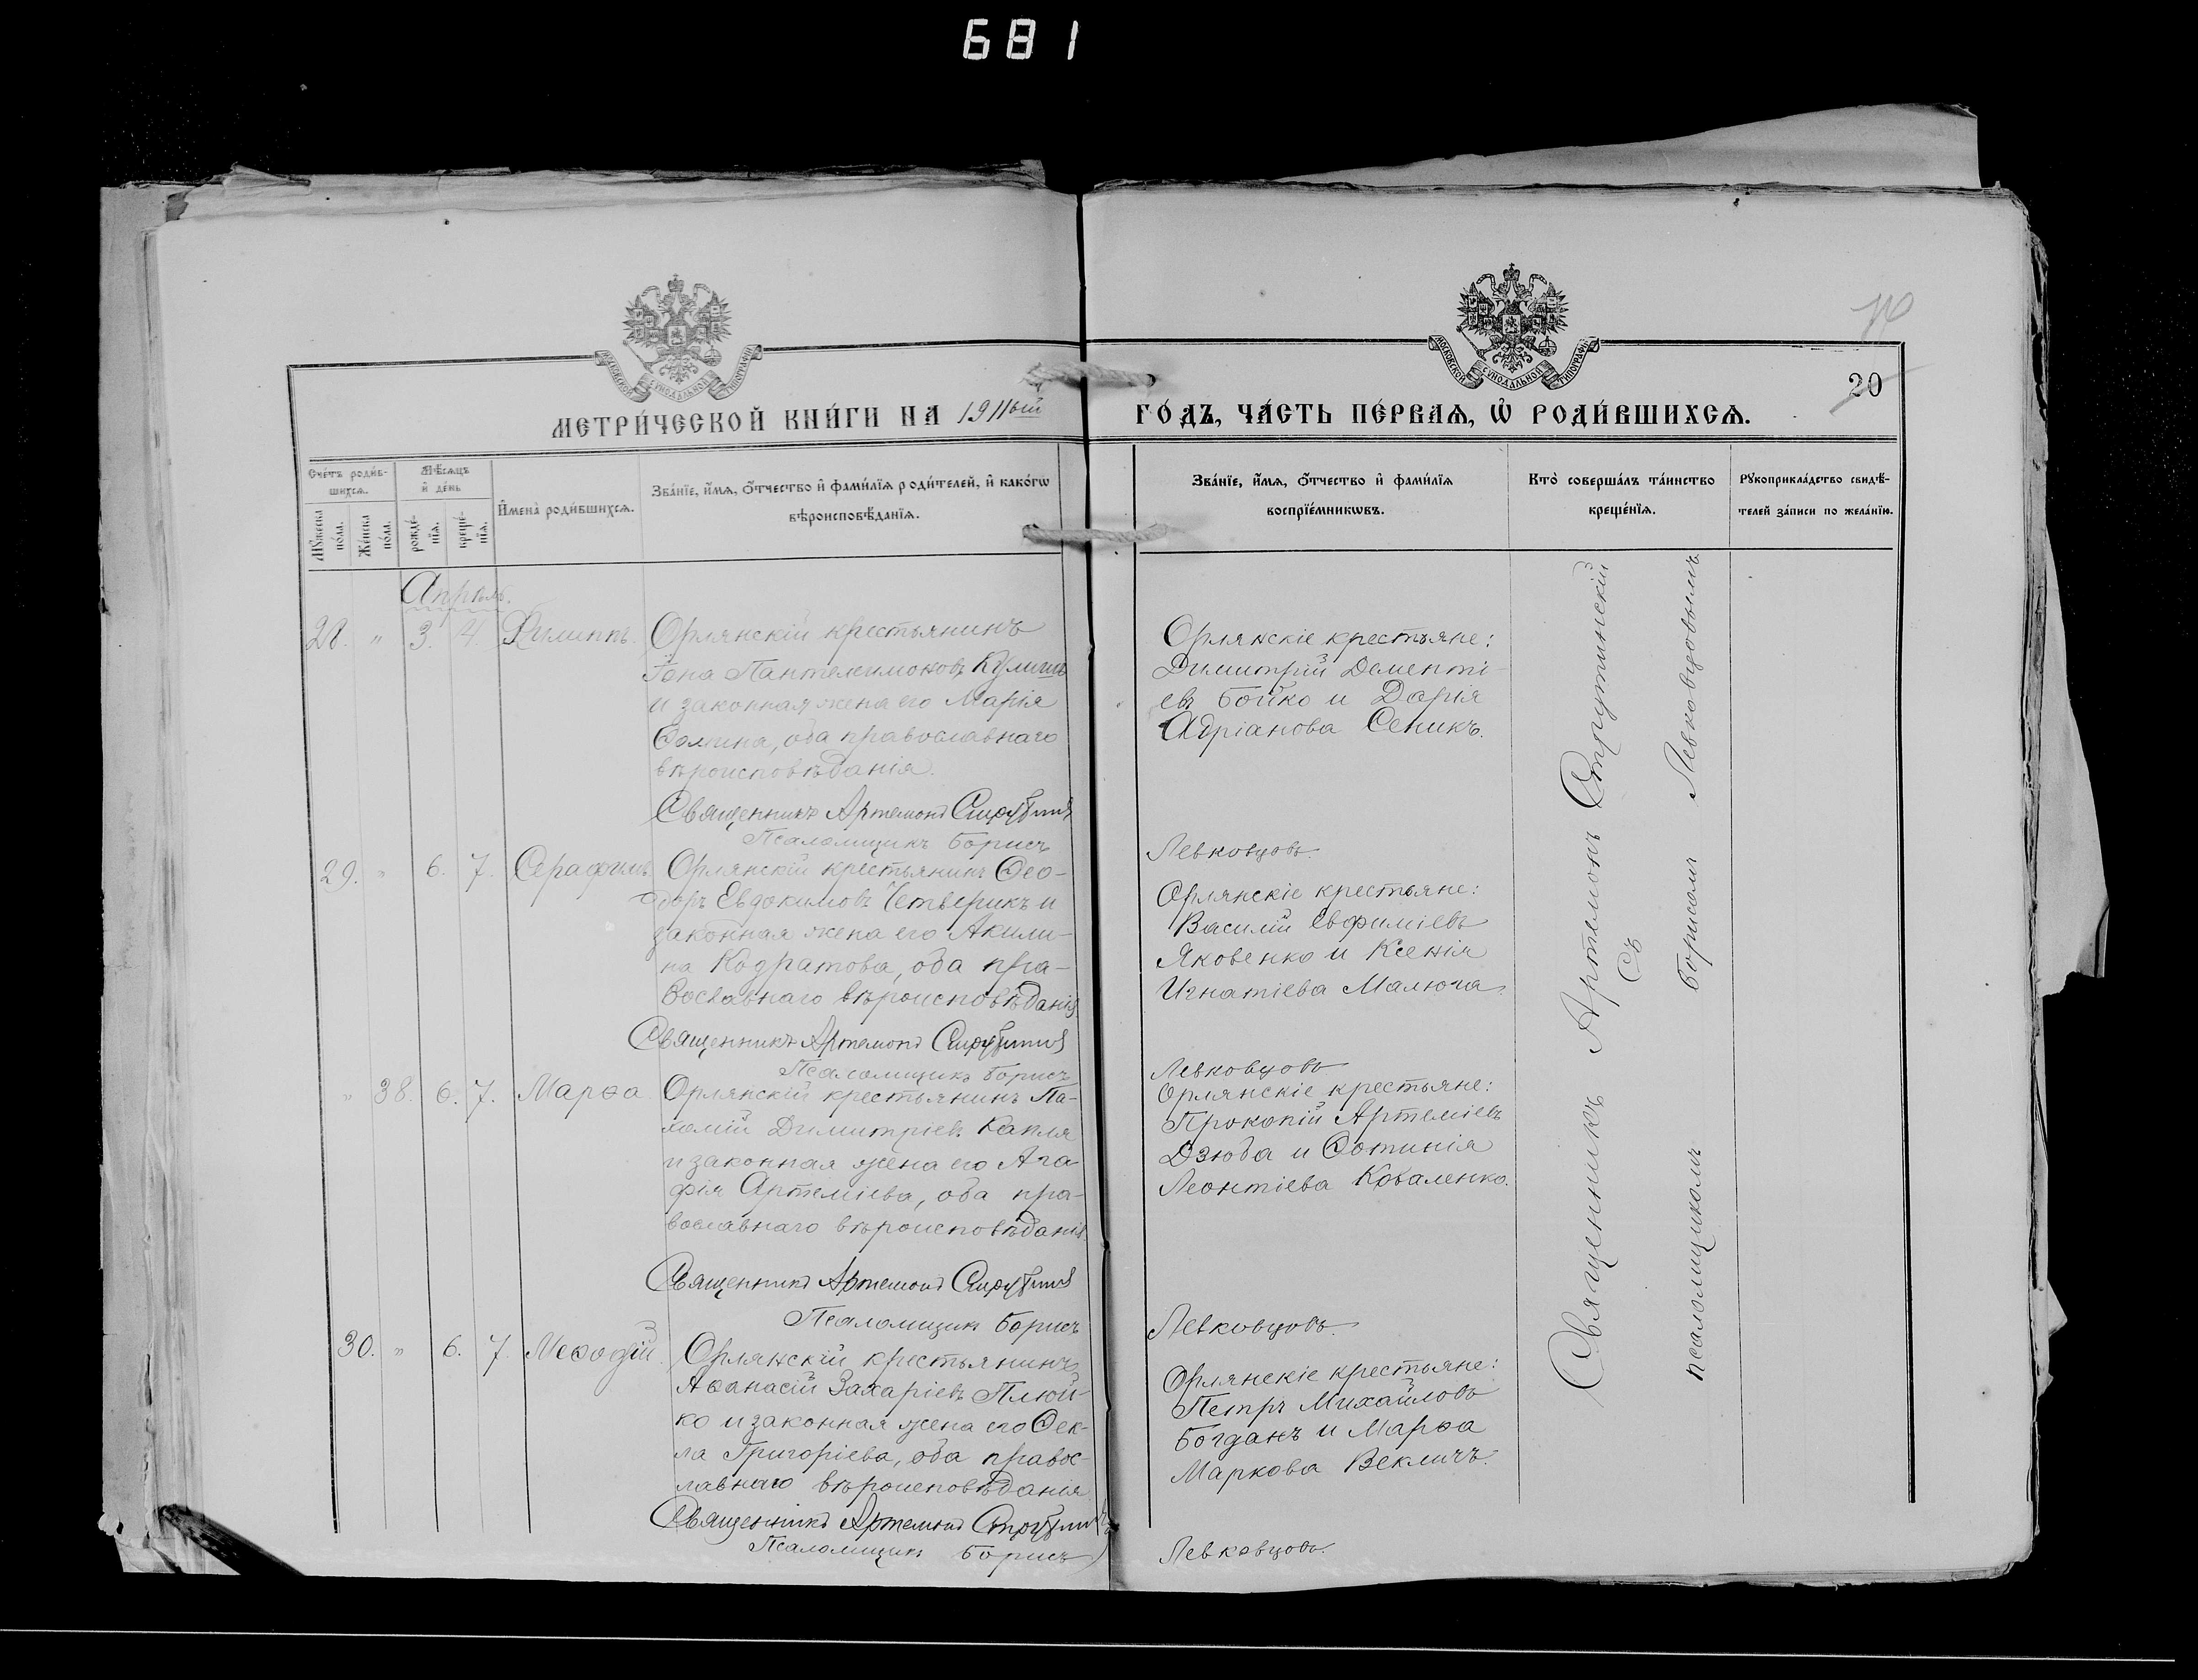 681
МОСКОВСКОЙ СѴНОДАЛЬНОЙ ТИПОГРАФІИ
МОСКОВСКОЙ СѴНОДАЛЬНОЙ ТИПОГРАФІИ
20
МЕТРИ́ЧЕСКОЙ КНИ́ГИ НА 1911ый
ГО́ДЪ, ЧА́СТЬ ПЕ́РВАѦ, Ѡ҆ РОДИ́ВШИХСѦ.
Сче́тъ роди́в-
шихсѧ.
Мѣ́сѧцъ
и҆ де́нь
Мꙋ́жеска по́ла.
Же́нска по́ла.
рожде́-
нїѧ.
креще́-
нїѧ.
И҆мена̀ роди́вшихсѧ.
Зва́нїе, и҆́мѧ, ѻ҆́тчество и҆ фами́лїѧ роди́телей, и҆ како́гѡ
вѣроисповѣ́данїѧ.
Зва́нїе, и҆́мѧ, ѻ҆́тчество и҆ фами́лїѧ
воспрїе́мникѡвъ.
Кто̀ соверша́лъ та́инство
креще́нїѧ.
Рꙋкоприкла́дство свидѣ́-
телей за́писи по жела́нїю.
Апрѣль.
28. " 3. 4. Филиппъ.
Орлянскій крестьянинъ
Іона Пантелеимоновъ Кулишъ
и законная жена его Марія
Ѳомина, оба православнаго
вѣроисповѣданія.
Священникъ Артемонъ
Псаломщикъ Борисъ
Орлянскіе крестьяне:
Димитрій Дементі-
евъ Бойко и Дарія
Адріанова Сеникъ.
Левковцовъ.
29. " 6. 7. Серафимъ
Орлянскій крестьянинъ Ѳео-
доръ Евдокимовъ Четверикъ и
законная жена его Акили-
на Кодратова, оба пра-
вославнаго вѣроисповѣданія
Священникъ Артемонъ
Псаломщикъ Борисъ
Орлянскіе крестьяне:
Василій Евфиміевъ
Яковенко и Ксенія
Игнатіева Малюга.
Левковцовъ
" 38. 6. 7. Марѳа.
Орлянскій крестьянинъ Па-
хомій Димитріев. Капля
и законная жена его Ага-
фія Артеміева, оба пра-
вославнаго вѣроисповѣданія
Священникъ Артемонъ
Псаломщикъ Борисъ
Орлянскіе крестьяне:
Прокопій Артеміевъ
Дзюба и Фотинія
Леонтіева Коваленко.
Левковцовъ.
30. " 6. 7. Меѳодій.
Орлянскій крестьянинъ
Аѳанасій Захаріевъ Плюй-
ко и законная жена его Ѳек-
ла Григоріева, оба правос-
лавнаго вѣроисповѣданія
Священникъ Артемонъ
Псаломщикъ Борисъ
Орлянскіе крестьяне:
Петръ Михайловъ
Богданъ и Марѳа
Маркова Векличъ.
Левковцовъ.
Священникъ Артемонъ Струтинскій
съ
псаломщикомъ Борисомъ Левковцовымъ